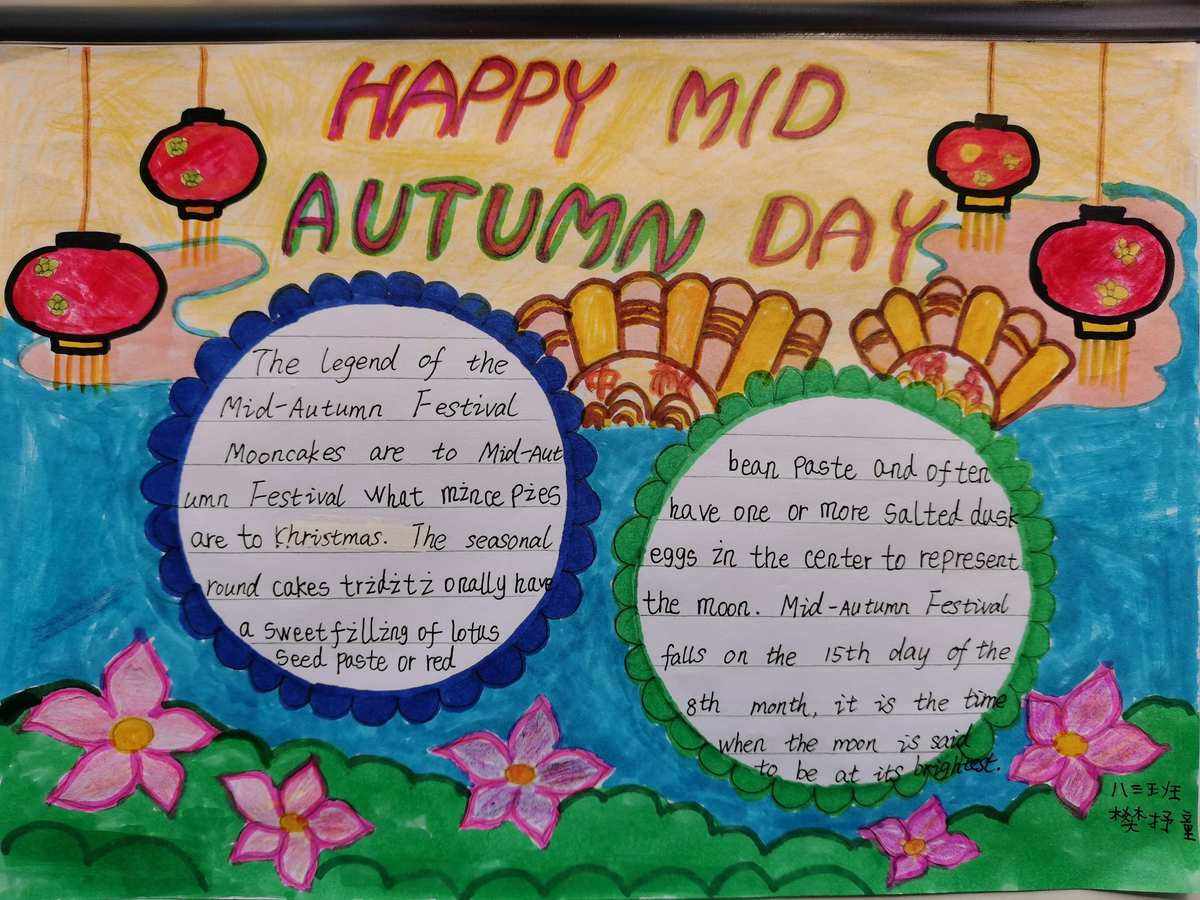 HAPPY MID
AUTUMN DAY
The legend of the
Mid-Autumn Festival
Mooncakes are to Mid-Aut
umn Festival what mince pies
are to Khristmas. The seasonal
round cakes triditi onally have
a sweet filling of lotus
Seed paste or red
bean paste and often
have one or more salted dusk
eggs in the center to represent
the moon. Mid-Autumn Festival
falls on the 15th day of the
8th month, it is the time
when the moon is said
to be at its brightest.
樊抒童